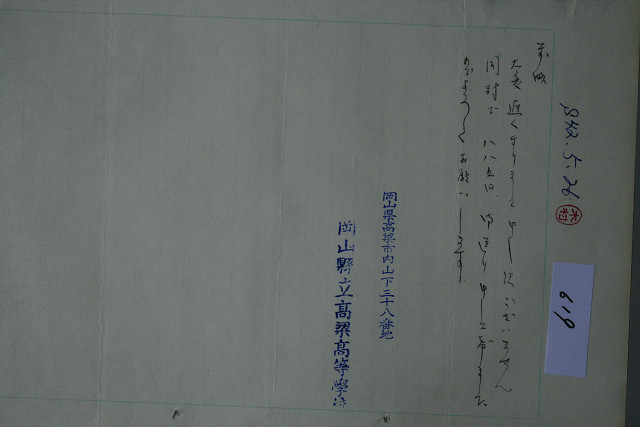 S42.5.26
木村
619
前略
大変遅くなりまして申し訳ございません
同封で 八八五円 御送り申し上げました
よろしくお願いします
岡山県高梁市内山下三十八番地
岡山縣立高梁高等學校